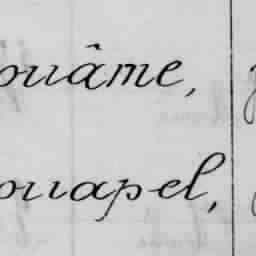 ouâme,
ouapel,